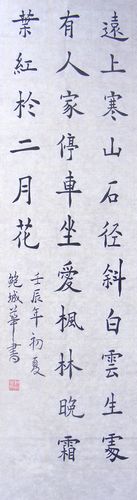 遠上寒山石径斜白雲生處
有人家停車坐愛楓林晚霜
葉紅於二月花
壬辰年初夏
鲍城華書